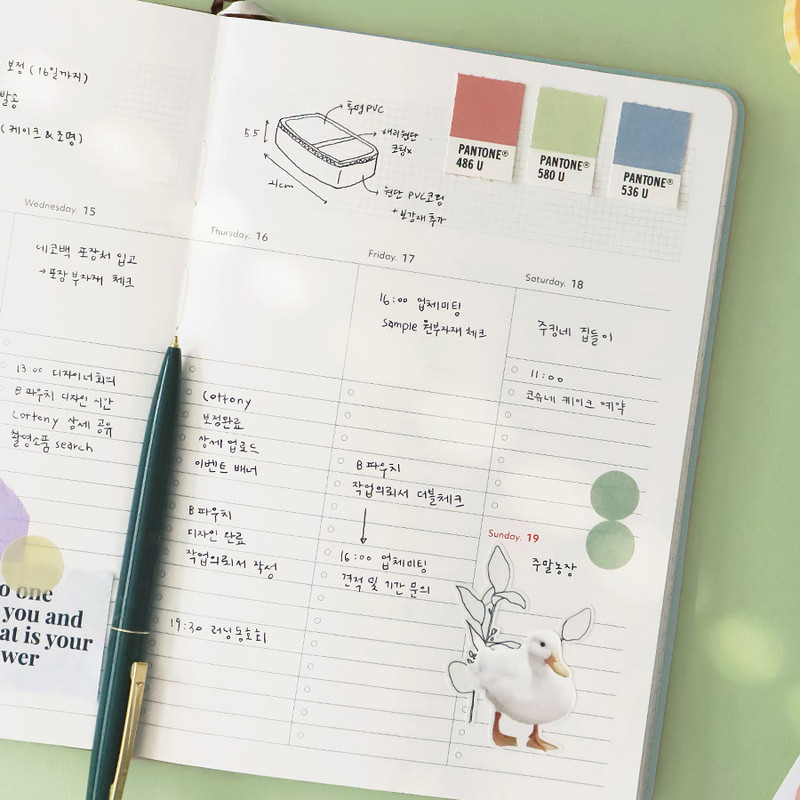 보정 (16일까지)
발송
(케이크 & 조명)
Wednesday. 15
에코백 포장처 입고
→ 포장 부자재 체크
13:00 디자이너회의
B 파우치 디자인 시안
Cottony 상세 공유
촬영소품 search
o one
you and
at is your
wer
투명 PVC
5.5
21cm
원단 PVC코팅
+ 보강재 추가
PANTONE®
486 U
PANTONE®
580 U
PANTONE®
536 U
Thursday. 16
Cottony
보정완료
상세 업로드
이벤트 배너
B 파우치
디자인 완료
작업의뢰서 작성
19:30 러닝동호회
Friday. 17
16:00 업체미팅
sample 원부자재 체크
B 파우치
작업의뢰서 더블체크
16:00 업체미팅
견적 및 기간 문의
Saturday. 18
집들이
11:00
케이크 예약
Sunday. 19
주말농장